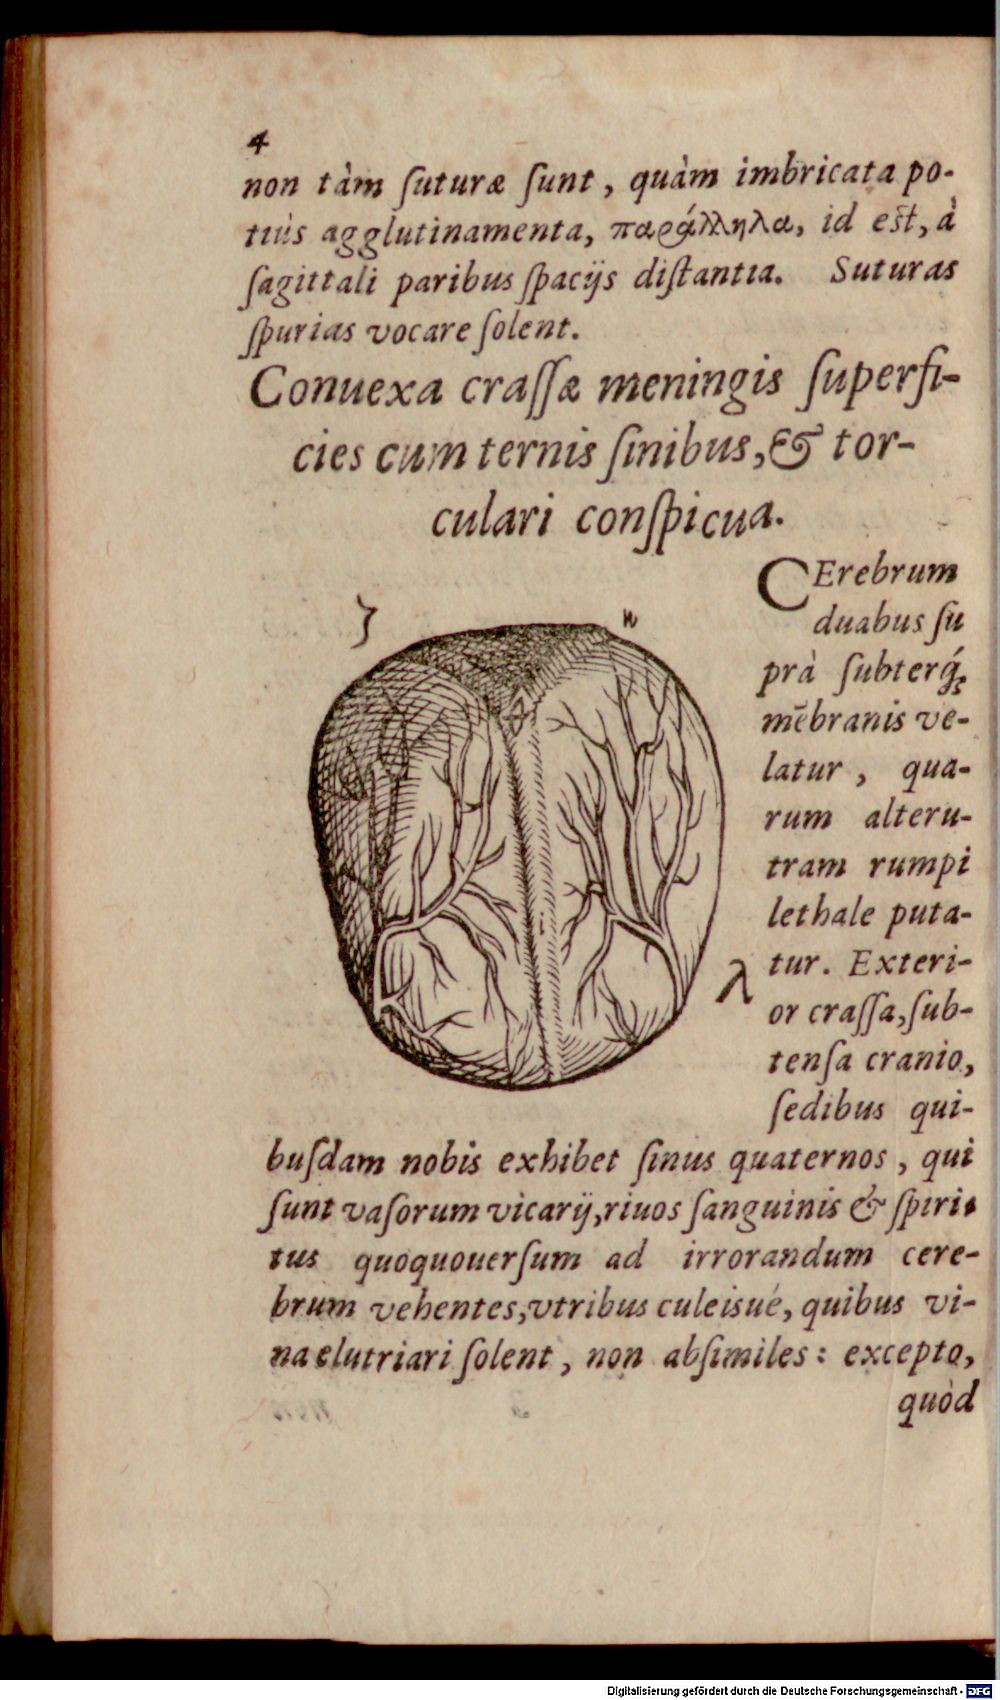 4
non tàm ſuturæ ſunt, quàm imbricata po-
tiùs agglutinamenta, παράλληλα, id eſt, à
ſagittali paribus ſpacijs diſtantia. Suturas
ſpurias vocare ſolent.
Conuexa craſſæ meningis superfi-
cies cum ternis ſinibus, & tor-
culari conſpicua.
CErebrum
duabus ſu
prà ſubterq́;
mēbranis ve-
latur, qua-
rum alteru-
tram rumpi
lethale puta-
tur. Exteri-
or craſſa, ſub-
tenſa cranio,
ſedibus qui-
ζ
η
λ
buſdam nobis exhibet ſinus quaternos, qui
ſunt vaſorum vicarij, riuos ſanguinis & ſpiri-
tus quoquouerſum ad irrorandum cere-
brum vehentes, vtribus culeisué, quibus vi-
na elutriari ſolent, non abſimiles: excepto,
quòd
Digitalisierung gefördert durch die Deutsche Forschungsgemeinschaft - DFG